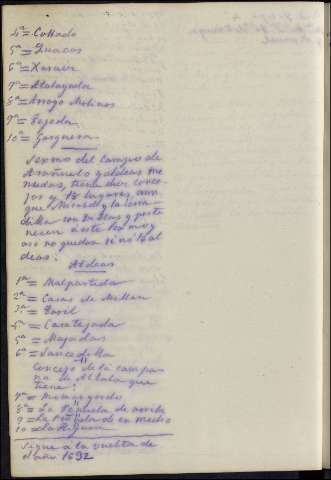 4ª = Collado
5ª = Quacos
6ª = Xaraiz
7ª = Atalayuela
8ª = Arroyo Molinos
9ª = Tejeda
10ª = Garguera
Sexmo del campo de
Arañuelo y aldeas me
nudas, tiene diez conce
jos y 12 lugares, aun
que Mirabel y la
con y perte
necen á este
así no quedan si nó 10 al
deas:
Aldeas
1ª = Malpartida
2ª = Casas de Millan
3ª = Toril
4ª = Casatejada
5ª = Majadas
6ª = Saucedilla
Concejo de la campa
na de Albala que
tiene:
7ª = Romangordo
8ª = La de arriba
9 = La de en medio
10 = La Higuera
Sigue á la vuelta de
el año 1692